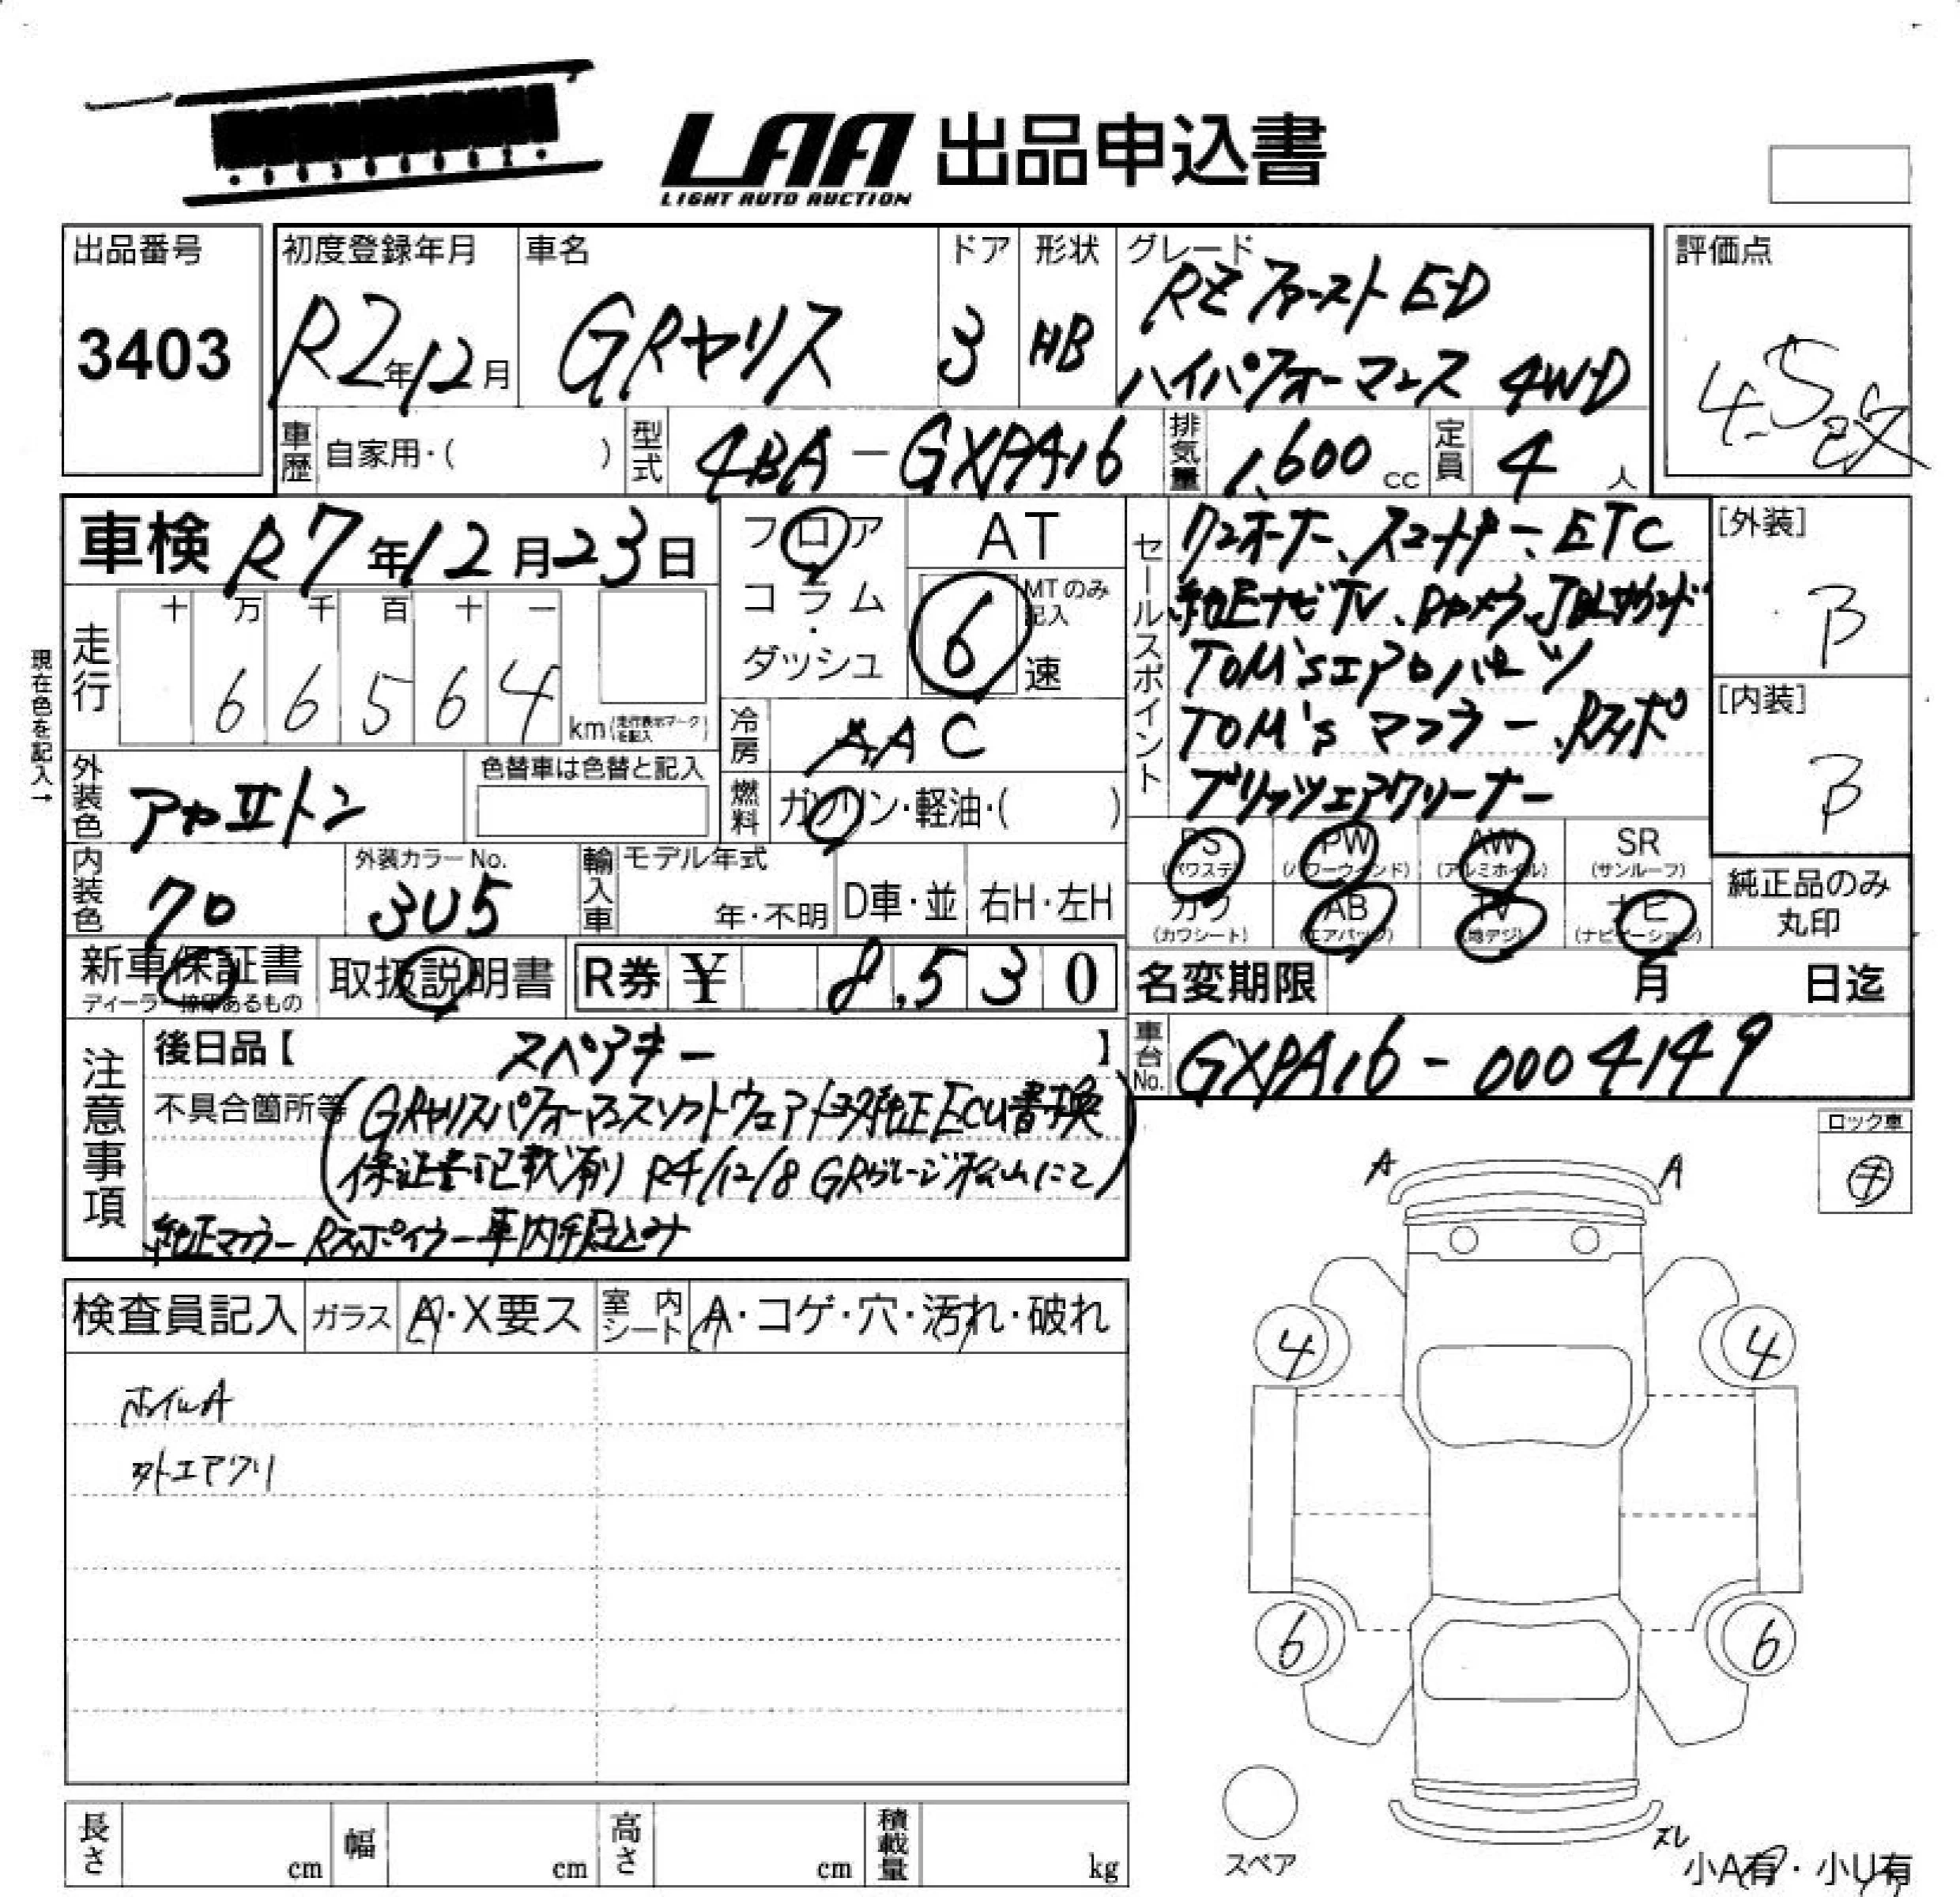 LAA 出品申込書
LIGHT AUTO AUCTION
出品番号
3403
初度登録年月
R2年12月
車名
GRヤリス
ドア
3
形状
HB
グレード
RZ ファースト ED
ハイパフォーマンス 4WD
評価点
4.5改
車歴
自家用・( )
型式
4BA-GXPA16
排気量
1,600cc
定員
4人
車検 R7年12月23日
フロア
コラム・
ダッシュ
AT
MTのみ記入
6速
セールスポイント
ワンオーナー、スマートキー、ETC
純正ナビTV、Bカメラ、JBLサウンド
TOM'sエアロパーツ
TOM's マフラー、Rスポ
ブリッツエアクリーナー
[外装]
B
[内装]
B
現在色を記入→
走行
十 万 千 百 十 一
66564
km(走行表示マークを記入)
冷房
AAC
外装色
色替車は色替と記入
燃料
ガソリン・軽油・( )
PS (パワステ)
PW (パワーウインド)
AW (アルミホイル)
SR (サンルーフ)
カワ (カワシート)
AB (エアバッグ)
TV (地デジ)
ナビ (ナビゲーション)
純正品のみ
丸印
内装色
クロ
外装カラーNo.
3U5
輸入車
モデル年式
年・不明
D車・並
右H・左H
新車保証書
ディーラー捺印あるもの
取扱説明書
R券 ¥ 8,530
名変期限 月 日迄
注意事項
後日品【 スペアキー 】
車台No.
GXPA16-0004149
不具合箇所等
(GRヤリスパフォーマンスソフトウェア トヨタ純正ECU書換
保証書記載有り R4/12/8 GRガレージ松山にて)
純正マフラー Rスポイラー車内積込み
ロック車
検査員記入
ガラス
A・X要ス
室内シート
A・コゲ・穴・汚れ・破れ
ホイルA
外エアクリ
A
A
4
4
6
6
スペア
ズレ
小A有・小U有
長さ cm
幅 cm
高さ cm
積載量 kg